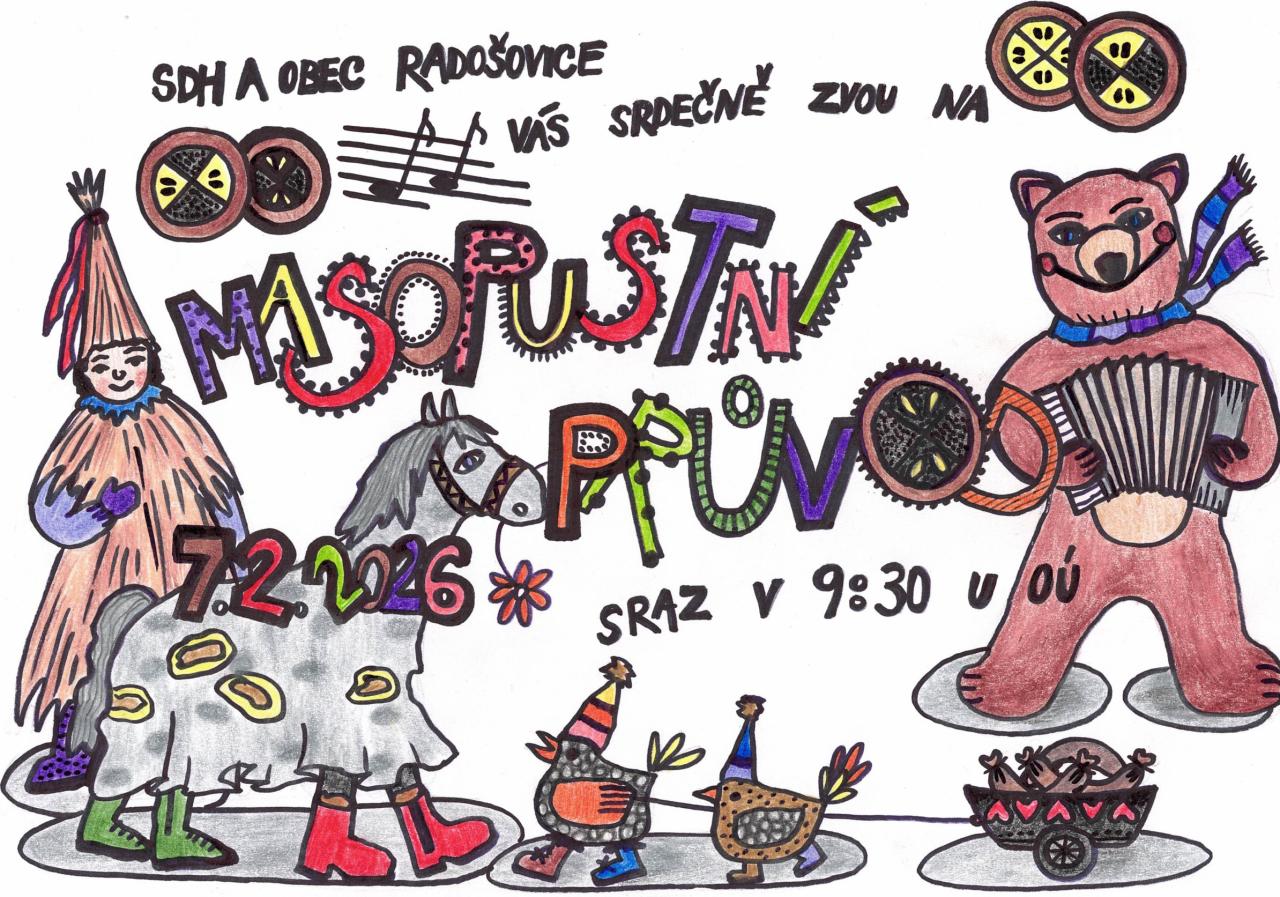 SDH A OBEC RADOŠOVICE
VÁS SRDEČNĚ ZVOU NA
MASOPUSTNÍ
PRŮVOD
7.2.2026
SRAZ V 9:30 U OÚ